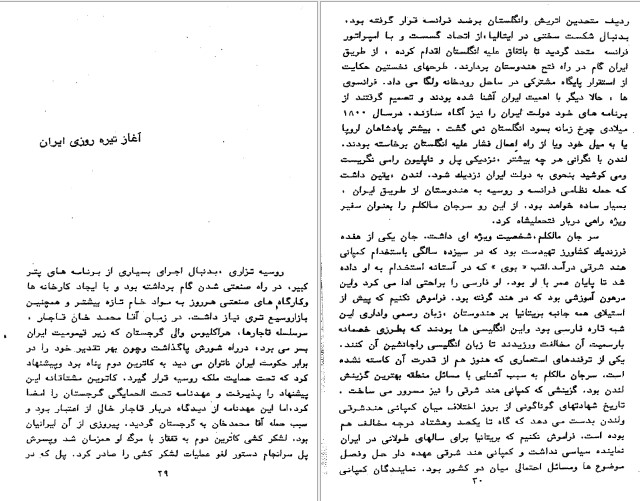 آغاز تیره روزی ایران
روسیه تزاری ،بدنبال اجرای بسیاری از برنامه های پتر
کبیر، در راه صنعتی شدن گام برداشته بود و با ایجاد کارخانه ها
وکارگاه های صنعتی هرروز به مواد خام تازه بیشتر و همچنین
بازاروسیع تری نیاز داشت. در زمان آقا محمد خان قاجار ،
سرسلسله قاجارها، هراکلیوس والی گرجستان که زیر قیمومیت ایران
بسر می برد، درراه شورش پاگذاشت وچون بهر تقدیر خود را در
برابر حکومت ایران ناتوان می دید به کاترین دوم پناه برد وپیشنهاد
کرد که تحت حمایت ملکه روسیه قرار گیرد. کاترین مشتاقانه این
پیشنهاد را پذیرفت و عهدنامه تحت الحمایگی گرجستان را امضا
کرد،اما این عهدنامه از دیدگاه دربار قاجار خالی از اعتبار بود و
سبب حمله آقا محمدخان به گرجستان گردید. پیروزی از آن ایرانیان
بود. لشکر کشی کاترین دوم به قفقاز با مرگ او همزمان شد وپسرش
پل سرانجام دستور لغو عملیات لشکر کشی را صادر کرد. پل که در
۲۹
ردیف متحدین اتریش وانگلستان برضد فرانسه قرار گرفته بود،
بدنبال شکست سختی در ایتالیا،از اتحاد گسست و با امپراتور
فرانسه متحد گردید تا باتفاق علیه انگلستان اقدام کرده ، از طریق
ایران گام در راه فتح هندوستان بردارند. طرحهای نخستین حکایت
از استقرار پایگاه مشترکی در ساحل رودخانه ولگا می داد. فرانسوی
ها ، حالا دیگر با اهمیت ایران آشنا شده بودند و تصمیم گرفتند از
برنامه های خود دولت ایران را نیز آگاه سازند. درسال ۱۸۰۰
میلادی چرخ زمانه بسود انگلستان نمی گشت . بیشتر پادشاهان اروپا
یا به میل خود ویا از راه اعمال فشار علیه انگلستان برخاسته بودند.
لندن با نگرانی هر چه بیشتر ،نزدیکی پل و ناپلیون رامی نگریست
ومی کوشید بنحوی به دولت ایران نزدیك شود. لندن ،یقین داشت
که حمله نظامی فرانسه و روسیه به هندوستان از طریق ایران ،
بسیار ساده خواهد بود. از این رو سرجان مالکلم را بعنوان سفیر
ویژه راهی دربار فتحعلیشاه کرد.
سر جان مالکلم،شخصیت ویژه ای داشت. جان یکی از هفده
فرزندیك کشاورز تهیدست بود که در سیزده سالگی باستخدام کمپانی
هند شرقی درآمد.لقب «بوی » که در آستانه استخدام به او داده
شد تا پایان عمر با او بود. او فارسی را براحتی ادا می کرد واین
مرهون آموزشی بود که در هند گرفته بود. فراموش نکنیم که پیش از
استیلای همه جانبه بریتانیا بر هندوستان ،زبان رسمی واداری این
شبه قاره فارسی بود واین انگلیسی ها بودند که بطرزی خصمانه
بارسمیت آن مخالفت ورزیدند تا زبان انگلیسی راجانشین آن کنند.
یکی از ترفندهای استعماری که هنوز هم از قدرت آن کاسته نشده
است. سرجان مالکلم به سبب آشنایی با مسائل منطقه بهترین گزینش
لندن بود. گزینشی که کمپانی هند شرقی را نیز مسرور می ساخت .
تاریخ شهادتهای گوناگونی از بروز اختلاف میان کمپانی هندشرقی
ولندن بدست می دهد که گاه تا یکصد وهشتاد درجه مخالف هم
بوده است. فراموش نکنیم که بریتانیا برای سالهای طولانی در ایران
نماینده سیاسی نداشت و کمپانی هند شرقی عهده دار حل وفصل
موضوع ها ومسائل احتمالی میان دو کشور بود. نمایندگان کمپانی
۳۰